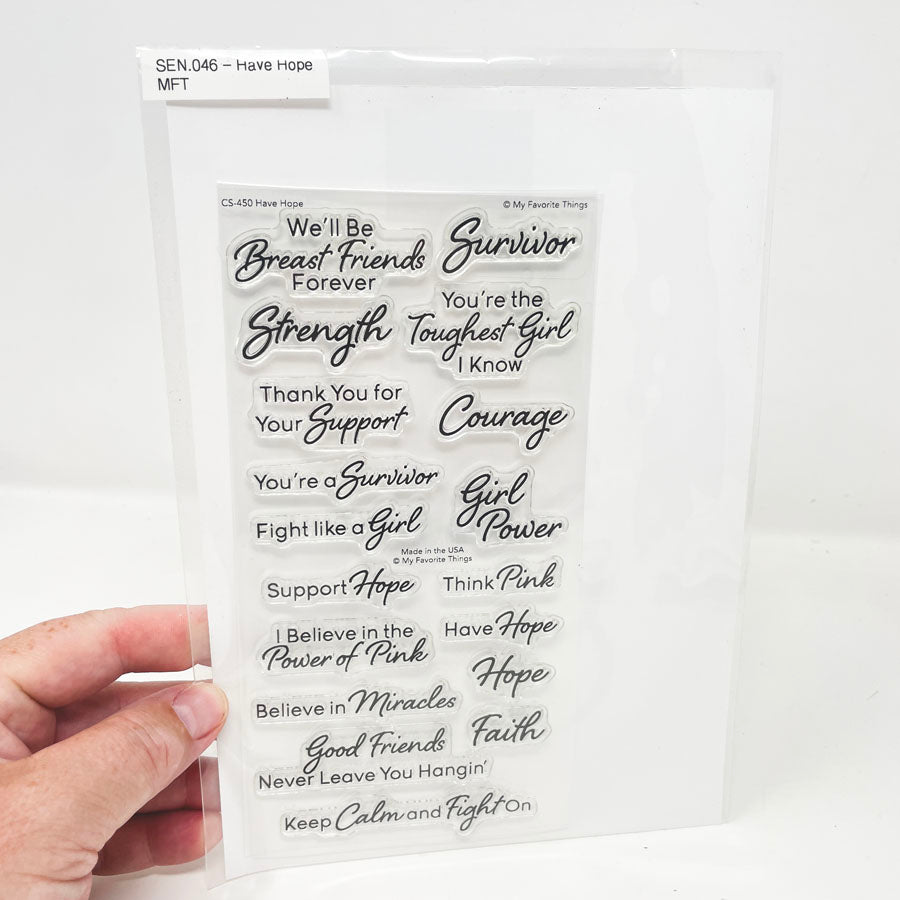 SEN.046 – Have Hope
MFT
CS-450 Have Hope
© My Favorite Things
We'll Be
Breast Friends
Forever
Survivor
Strength
You're the
Toughest Girl
I Know
Thank You for
Your Support
Courage
You're a Survivor
Girl
Power
Fight like a Girl
Made in the USA
© My Favorite Things
Support Hope
Think Pink
I Believe in the
Power of Pink
Have Hope
Hope
Believe in Miracles
Faith
Good Friends
Never Leave You Hangin'
Keep Calm and Fight On